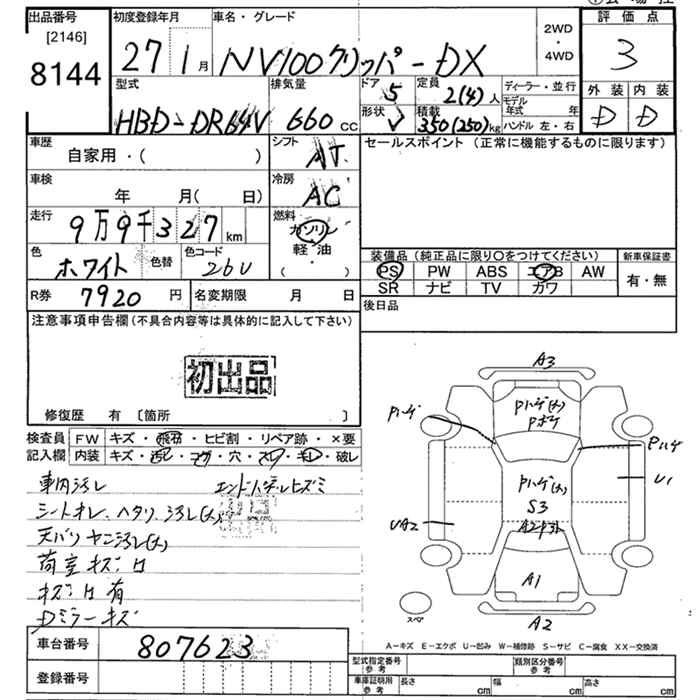 出品番号
[2146]
8144
初度登録年月
27 1月
車名・グレード
NV100クリッパー DX
2WD
・
4WD
評価点
3
外装 内装
D D
型式
HBD-DR64V
排気量
660 cc
ドア
5
形状
V
定員
2(4)人
積載
350(250)kg
ディーラー・並行
モデル年式 年
ハンドル 左・右
車歴
自家用・( )
シフト
AT
車検
年 月( 日)
冷房
AC
走行
9万9千327km
燃料
ガソリン
軽・油
・( )
色
ホワイト
色替
色コード
26U
R券
7920円
名変期限 月 日
セールスポイント(正常に機能するものに限ります)
装備品(純正品に限り〇をつけてください)
PS PW ABS エアB AW
SR ナビ TV カワ
新車保証書
有・無
後日品
注意事項申告欄(不具合内容等は具体的に記入して下さい)
初出品
修復歴 有 〔箇所 〕
検査員記入欄
FW キズ・飛石・ヒビ割・リペア跡・×要
内装 キズ・汚レ・コゲ・穴・スレ・キレ・破レ
車内汚レ
シートオレ、ヘタリ、汚レ(大)
天バリ ヤニ汚レ(大)
荷室キズ
キズ 有
Dミラーキズ
車台番号
807623
登録番号
A3
Pハゲ(大)
Pボケ
Pハゲ
Pハゲ
Pハゲ(大)
S3
U1
UA2
A1
A2
スペア
A-キズ E-エクボ U-凹み W-補修跡 S-サビ C-腐食 XX-交換済
型式指定番号
参考
類別区分番号
参考
車庫証明用
参考
長さ cm
幅 cm
高さ cm